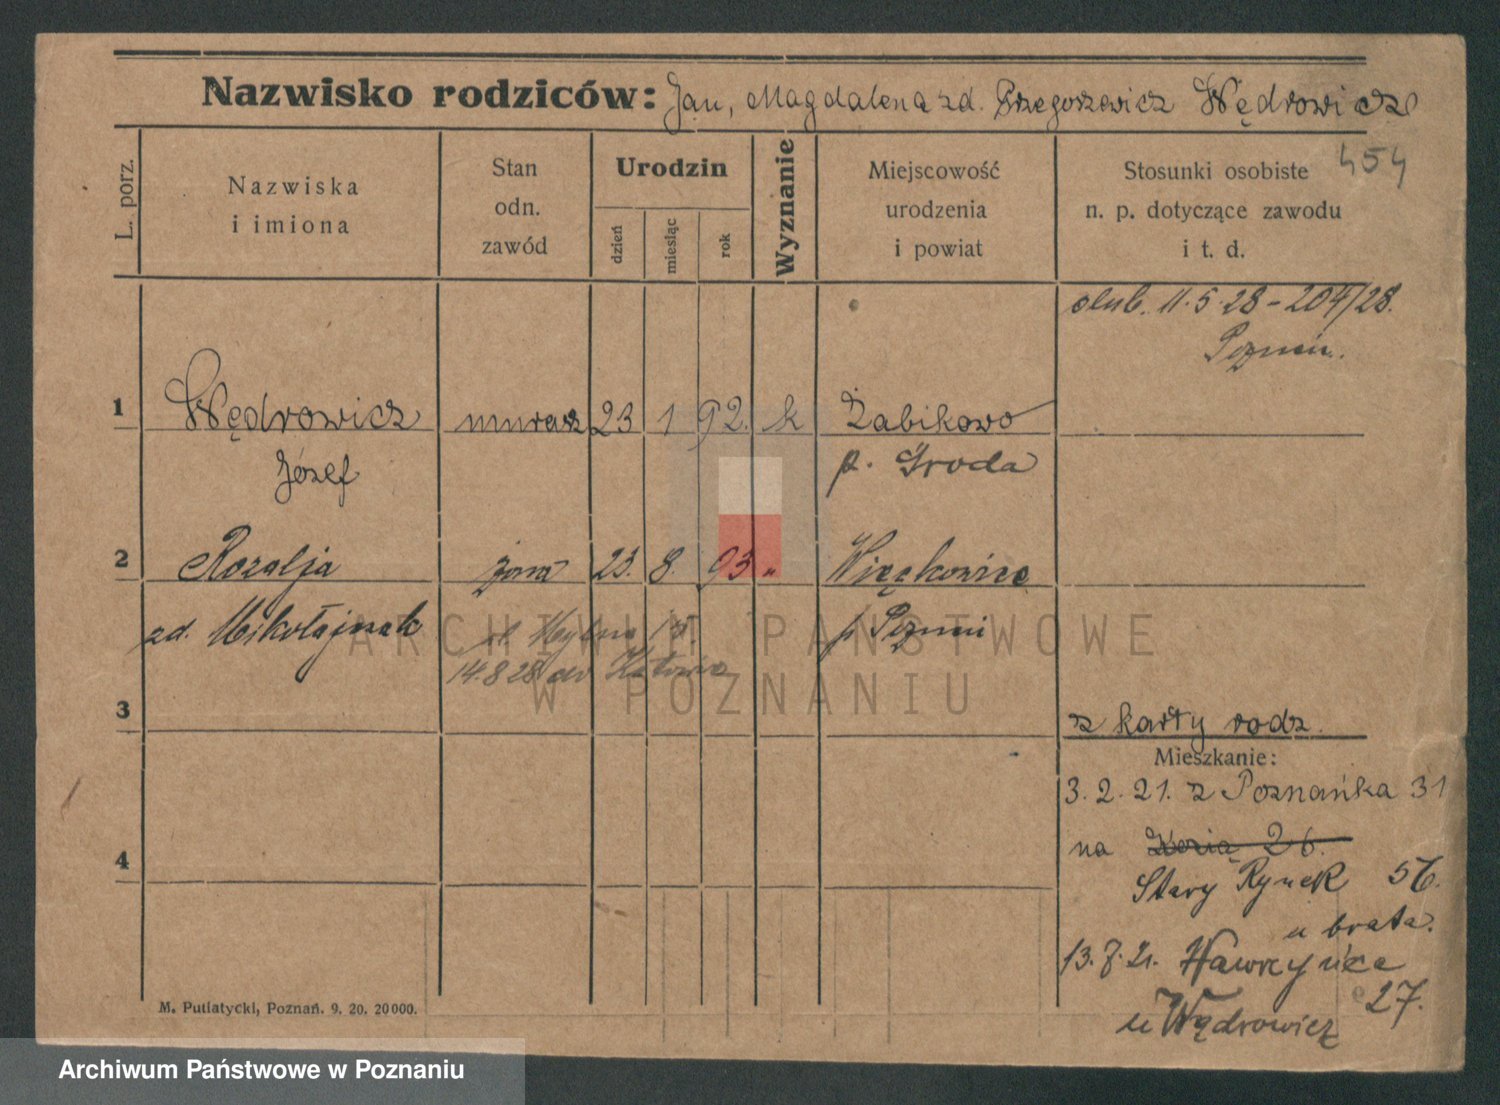 Nazwisko rodziców: Jan, Magdalena zd. Grzegorzewicz Wędrowicz
454
L. porz.
Nazwiska
i imiona
Stan
odn.
zawód
Urodzin
dzień
miesiąc
rok
Wyznanie
Miejscowość
urodzenia
i powiat
Stosunki osobiste
n. p. dotyczące zawodu
i t. d.
ślub. 11.5.28 - 204/28.
Poznań.
1 Wędrowicz murarz 23 1 92. k Żabikowo
Józef p. Środa
2 Rozalja żona 23. 8. 93 " Więckowice
zd. Mikołajczak p Poznań
14.8 28
3
z karty rodz.
Mieszkanie:
3.2.21. z Poznańka 31
na Kozią 26.
4
Stary Rynek 56.
u brata.
13.7.21. Wawrzyńca
27.
u Wędrowicz
M. Putiatycki, Poznań. 9. 20. 20000.
ARCHIWUM PAŃSTWOWE
W POZNANIU
Archiwum Państwowe w Poznaniu